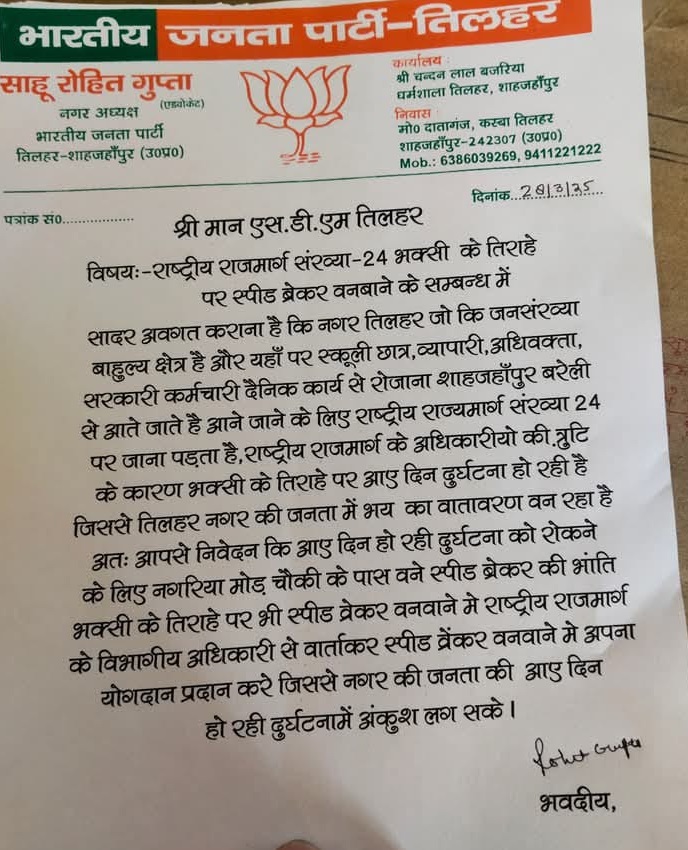 भारतीय जनता पार्टी-तिलहर
साहू रोहित गुप्ता
(एडवोकेट)
नगर अध्यक्ष
भारतीय जनता पार्टी
तिलहर-शाहजहाँपुर (उ०प्र०)
कार्यालय :
श्री चन्दन लाल बजरिया
धर्मशाला तिलहर, शाहजहाँपुर
निवास :
मो० दातागंज, कस्बा तिलहर
शाहजहाँपुर-242307 (उ०प्र०)
Mob.: 6386039269, 9411221222
पत्रांक सं०..................
दिनांक...28/3/25.....
श्री मान एस.डी.एम तिलहर
विषयः-राष्ट्रीय राजमार्ग संरव्या-24 भक्सी के तिराहे
पर स्पीड ब्रेकर वनबाने के सम्बन्ध में
सादर अवगत कराना है कि नगर तिलहर जो कि जनसंरव्या
बाहुल्य क्षेत्र है और यहाँ पर स्कूली छात्र,व्यापारी,अधिवक्ता,
सरकारी कर्मचारी दैनिक कार्य से रोजाना शाहजहाँपुर बरेली
से आते जाते है आने जाने के लिए राष्ट्रीय राज्यमार्ग संरव्या 24
पर जाना पड़ता है,राष्ट्रीय राजमार्ग के अधिकारीयो की त्रुटि
के कारण भक्सी के तिराहे पर आए दिन दुर्घटना हो रही है
जिससे तिलहर नगर की जनता में भय का वातावरण वन रहा है
अतः आपसे निवेदन कि आए दिन हो रही दुर्घटना को रोकने
के लिए नगरिया मोड़ चौकी के पास वने स्पीड ब्रेकर की भांति
भक्सी के तिराहे पर भी स्पीड व्रेकर वनवाने मे राष्ट्रीय राजमार्ग
के विभागीय अधिकारी से वार्ताकर स्पीड व्रेंकर वनवाने मे अपना
योगदान प्रदान करे जिससे नगर की जनता की आए दिन
हो रही दुर्घटनामें अंकुश लग सके।
Rohit Gupta
भवदीय,